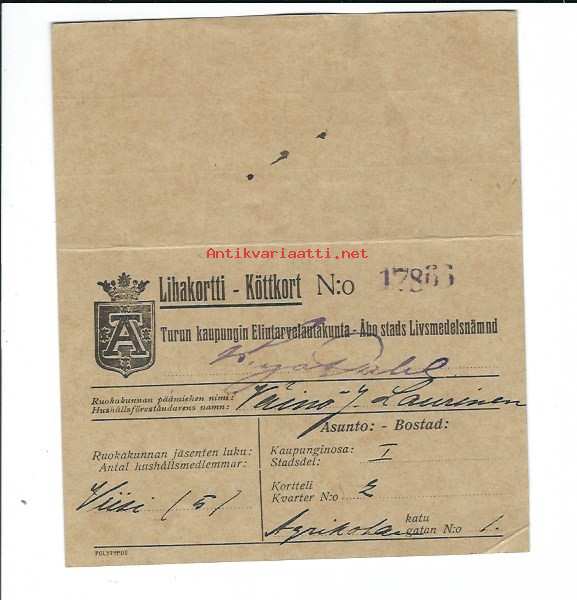 Antikvariaatti.net
Lihakortti - Köttkort N:o 17866
A
Turun kaupungin Elintarvelautakunta - Åbo stads Livsmedelsnämnd
Ruokakunnan päämiehen nimi:
Hushållsföreståndarens namn: Väinö J. Laurinen
Asunto: - Bostad:
Ruokakunnan jäsenten luku:
Antal hushållsmedlemmar:
Viisi (5)
Kaupunginosa:
Stadsdel: I
Kortteli
Kvarter N:o 2
Agrikolan katu
gatan N:o 1.
POLYTYPOS